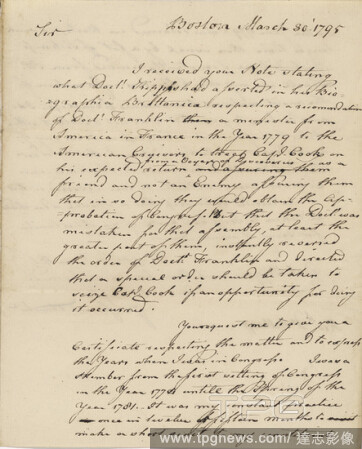 Boston March 30 1795
Sir
I received your Note stating
what Doctr. Kippis had asserted in his Bio-
graphia Brittanica respecting a recomendation
of Doctr. Franklin then a minister from
America in France in the Year 1779 to the
American Cruizers to treat Capt. Cook on
from a Voyage of Discoveries as a
his expected return and assuring them
friend and not an Enemy assuring them
that in so doing they would obtain the Ap-
probation of Congress. But that the Doct. was
mistaken for that assembly, at least the
greater part of them, instantly reversed
the order of Doctr. Franklin and directed
that a special order should be taken to
seize Capt. Cook if an opportunity for doing
it occurred.
You request me to give you a
Certificate respecting the matter and to express
the Years when I was in Congress I was a
member from the first sitting of Congress
in the Year 1774 untill the Spring of the
Year 1781. It was my constant practice
once in twelve or fifteen months to
make a
www.tpgnews.com 達志影像